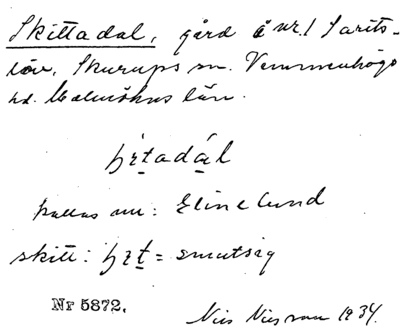 Skittadal, gård å nr. 1 Sarits-
löv, Skurups sn. Vemmenhögs
hd. Malmöhus län.
kallas nu: Elinelund
skitt: = smutsig
Nr 5872.
Nils Nilsson 1934.